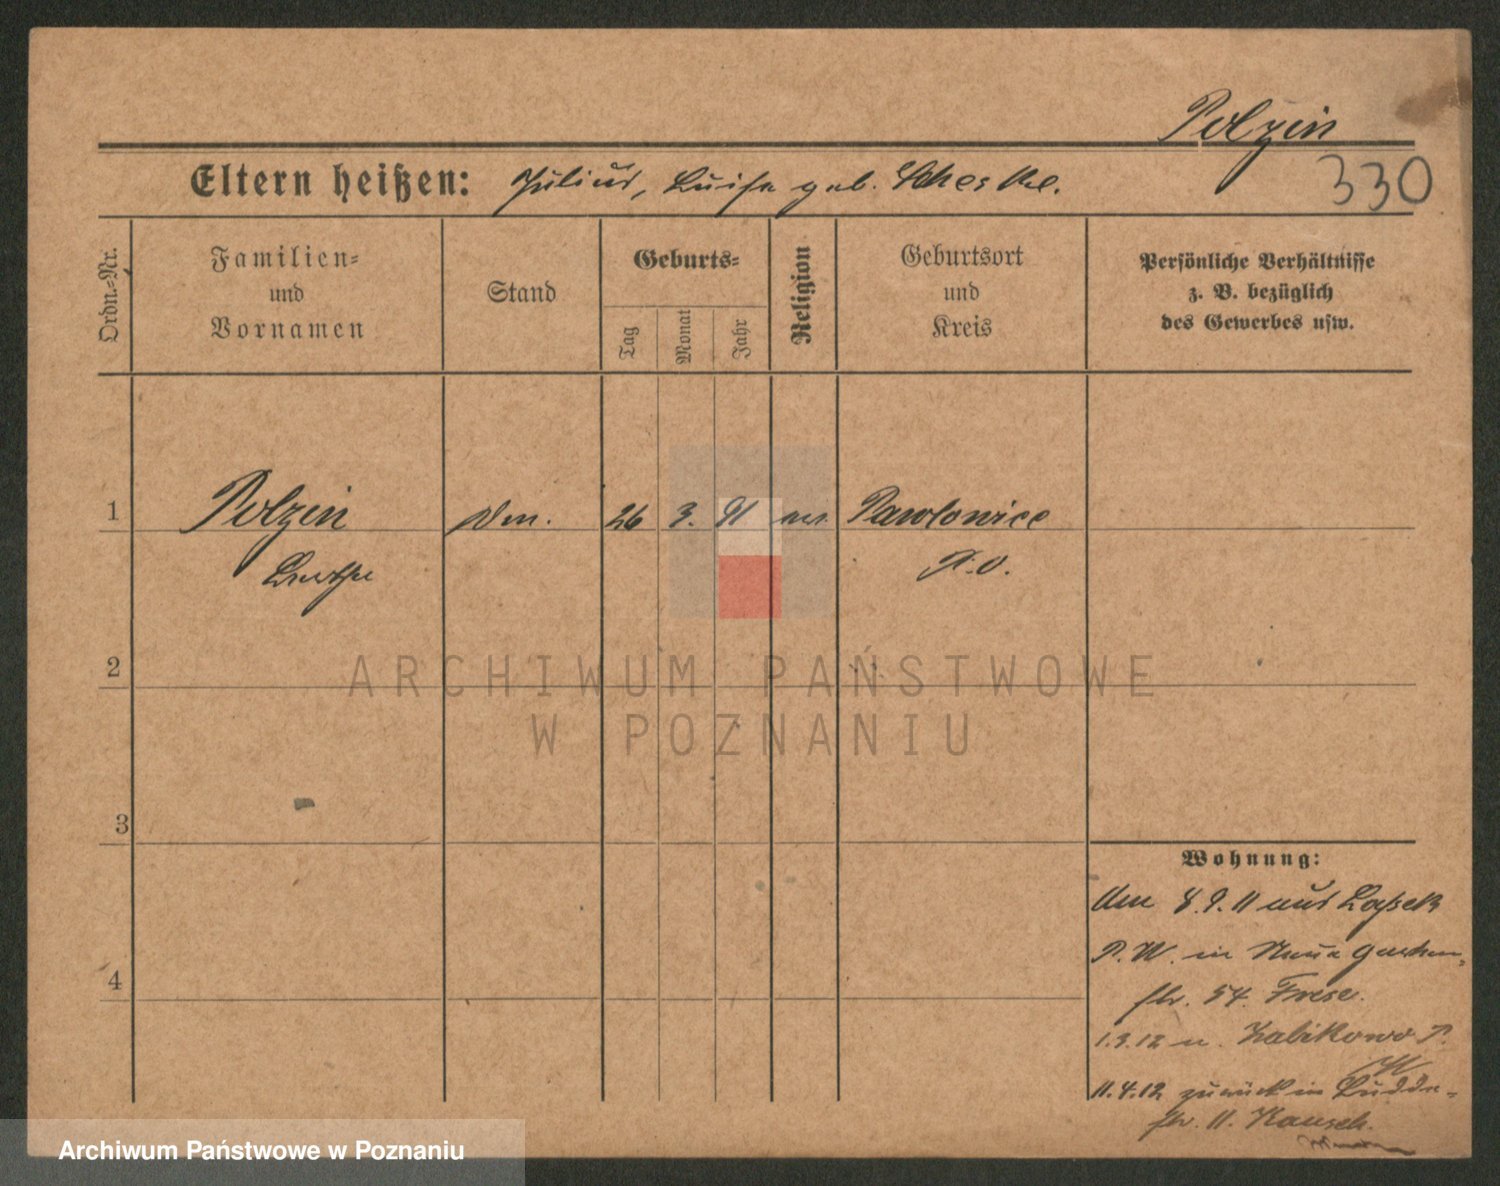 Polzin
Eltern heißen: Julius, Luise geb. Scheske.
330
Ordn.-Nr.
Familien-
und
Vornamen
Stand
Geburts-
Tag
Monat
Jahr
Religion
Geburtsort
und
Kreis
Persönliche Verhältnisse
z. B. bezüglich
des Gewerbes usw.
1 Polzin 26 3. 91 Pawlowice
P. O.
2
ARCHIWUM PAŃSTWOWE
W POZNANIU
3
4
Wohnung:
8.9.11 aus Lassek
P. W. in
str. 54. Frese.
1.3.12 n. Zabikowo P.
W
11.4.12 zurück in Budde-
str. 11.
Archiwum Państwowe w Poznaniu